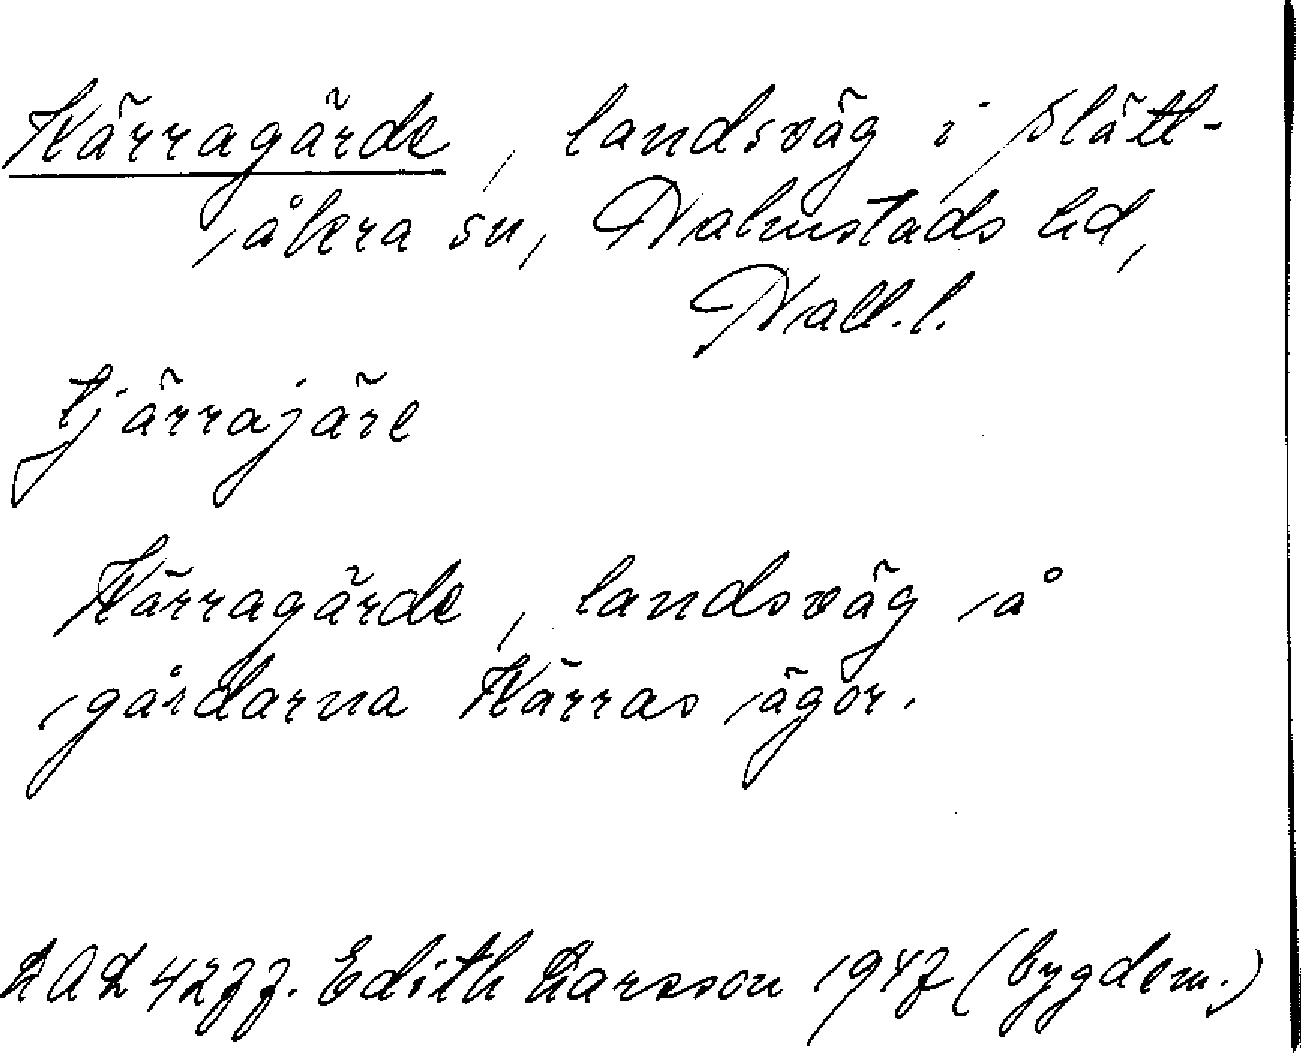 Kärragärde, landsväg i Slätt-
åkra sn, Halmstads hd,
Hall.l.
tjärrajäre
Kärragärde, landsväg å
gårdarna Kärras ägor.
LAL 4277. Edith Larsson 1947 (bygdem.)